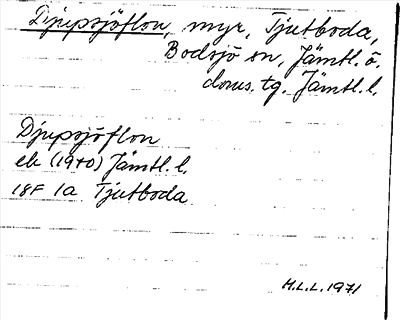 Djupsjöflon, myr, Tjutboda,
Bodsjö sn, Jämtl. ö.
doms. tg. Jämtl. l.
Djupsjöflon
ek (1970) Jämtl. l.
18F 1a Tjutboda
H.L.L. 1971